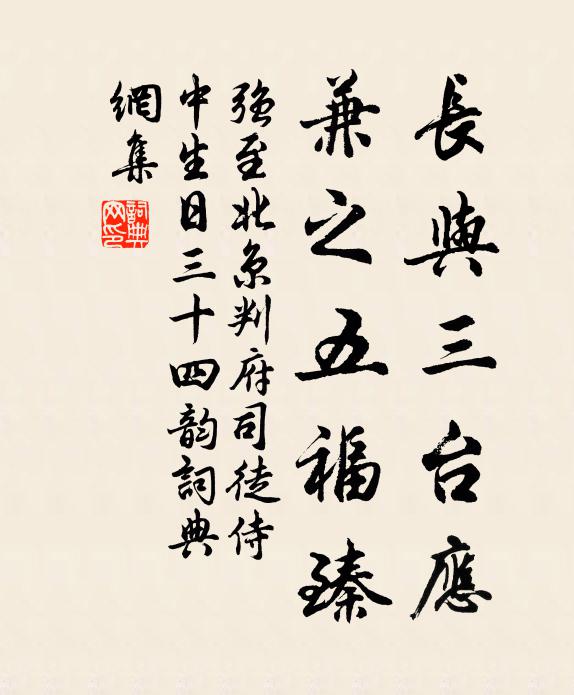 長與三台應
兼之五福臻
強至北京判府司徒侍
中生日三十四韵詞典
網集
詞典
网印